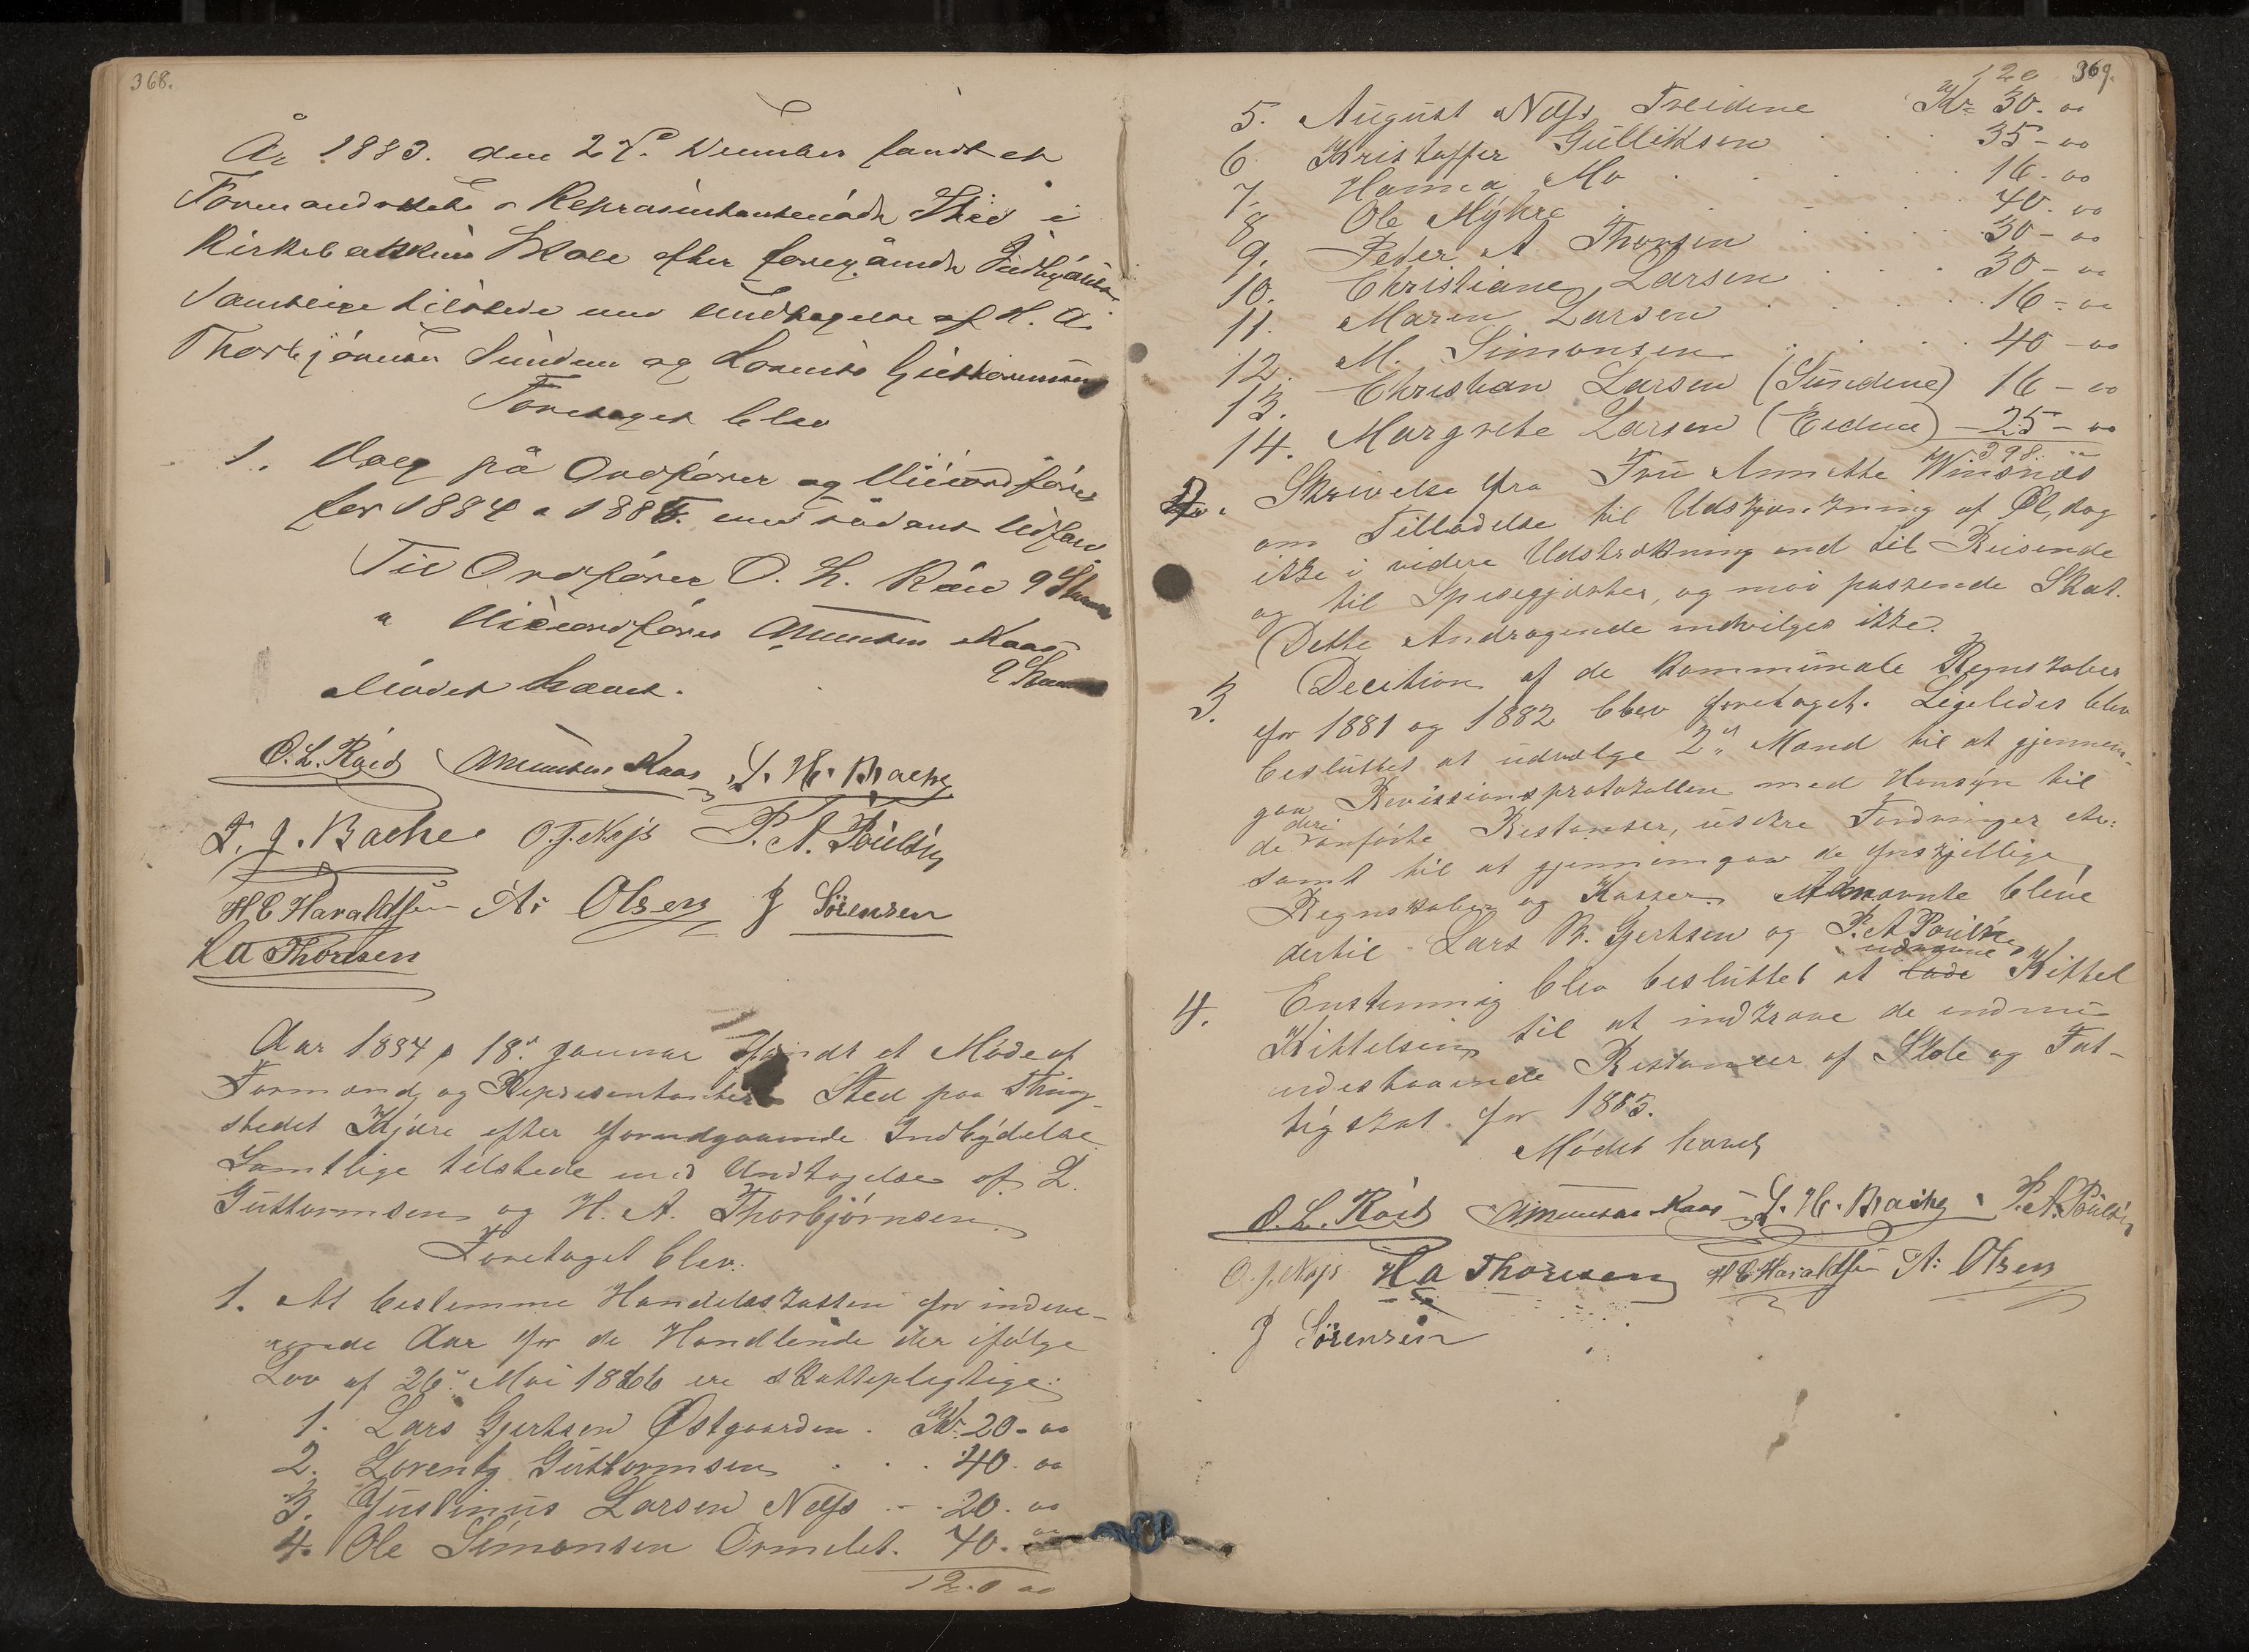 368.
År 1883. den 27de December fandt et
Formandskabs o Repræsentantmöde Sted i
Kirkebakkens Skole efter foregående Indbydelse
Samtlige tilstede med Undtagelse af H. A.
Thorbjörnsen Sunden og Lorents Guttormsen
Foretaget blev
1. Valg på Ordförer og Viceordförer
for 1884 o 1885. med sådant Udfald
Til Ordförer O. L. Röed 9 Stem
" Viceordförer Amundsen Kaas
9 Stem
Mödet hævet.
O. L. Röed Amundsen Kaas L. H. Bache
T. J. Bache O. J. Næjs P. A. Poulsen
H E Haraldsen A: Olsen J Sörensen
H A Thoresen
Aar 1884 p 18de Januar fandt et Møde af
Formænd og Repræsentanter Sted paa Thing-
stedet Kjære efter forudgaaende Indbydelse
Samtlige tilstede med Undtagelse af L.
Guttormsen og H. A. Thorbjørnsen.
Foretaget blev.
1. At bestemme Handelsskatten for indevæ-
rende Aar for de Handlende der ifølge
Lov af 26de Mai 1866 ere skattepligtige:
1. Lars Gjertsen Østgaarden . Kr. 20 - 00
2. Lorentz Guttormsen . . . 40. 00
3. Justinus Larsen Næs - . 20. 00
4. Ole Simonsen Ormelet. 40. 00
120 00
369.
120
5. August Næs Treidene Kr. 30. 00
6 Kristoffer Gulliksen . . 35 - 00
7. Hanna Mo . . . . 16 - 00
8 Ole Myhre . . . . 40. 00
9. Peder A Thorsen . . . . 30 - 00
10. Christiane Larsen . . . 30 - 00
11. Maren Larsen . . . . 16 - 00
12. M. Simonsen . . . . 40 - 00
13. Christian Larsen (Sundene) 16 - 00
14. Margrete Larsen (Eidene) - 25 - 00
398.
2. Skrivelse fra Fru Annette Winsnæs
om Tilladelse til Udskjænkning af Øl, dog
ikke i videre Udstrækning end til Reisende
og til Spisegjæster, og mod passende Skat.
Dette Andragende indvilges ikke.
3. Decition af de kommunale Regnskaber
for 1881 og 1882 blev foretaget. Ligeledes blev
besluttet at udvælge 2de Mænd til at gjennem-
gaa Revisionsprotokollen med Hensyn til
de deri anførte Restantser, usikre Fordringer etc:
samt til at gjennemgaa de forskjellige
Regnskaber og Kasser. Udnævnte bleve
dertil Lars B. Gjertsen og P. A Poulsen
4. Enstemmig blev besluttet at lade udnævne Kittel
Kittelsen til at indkræve de endnu
udestaaende Restancer af Skole og Fat-
tigskat for 1883.
Mødet hævet
O. L. Röed Amundsen Kaas L. H. Bache P. A. Poulsen
O. J. Næjs H A Thoresen H E Haraldsen A: Olsen
J Sörensen